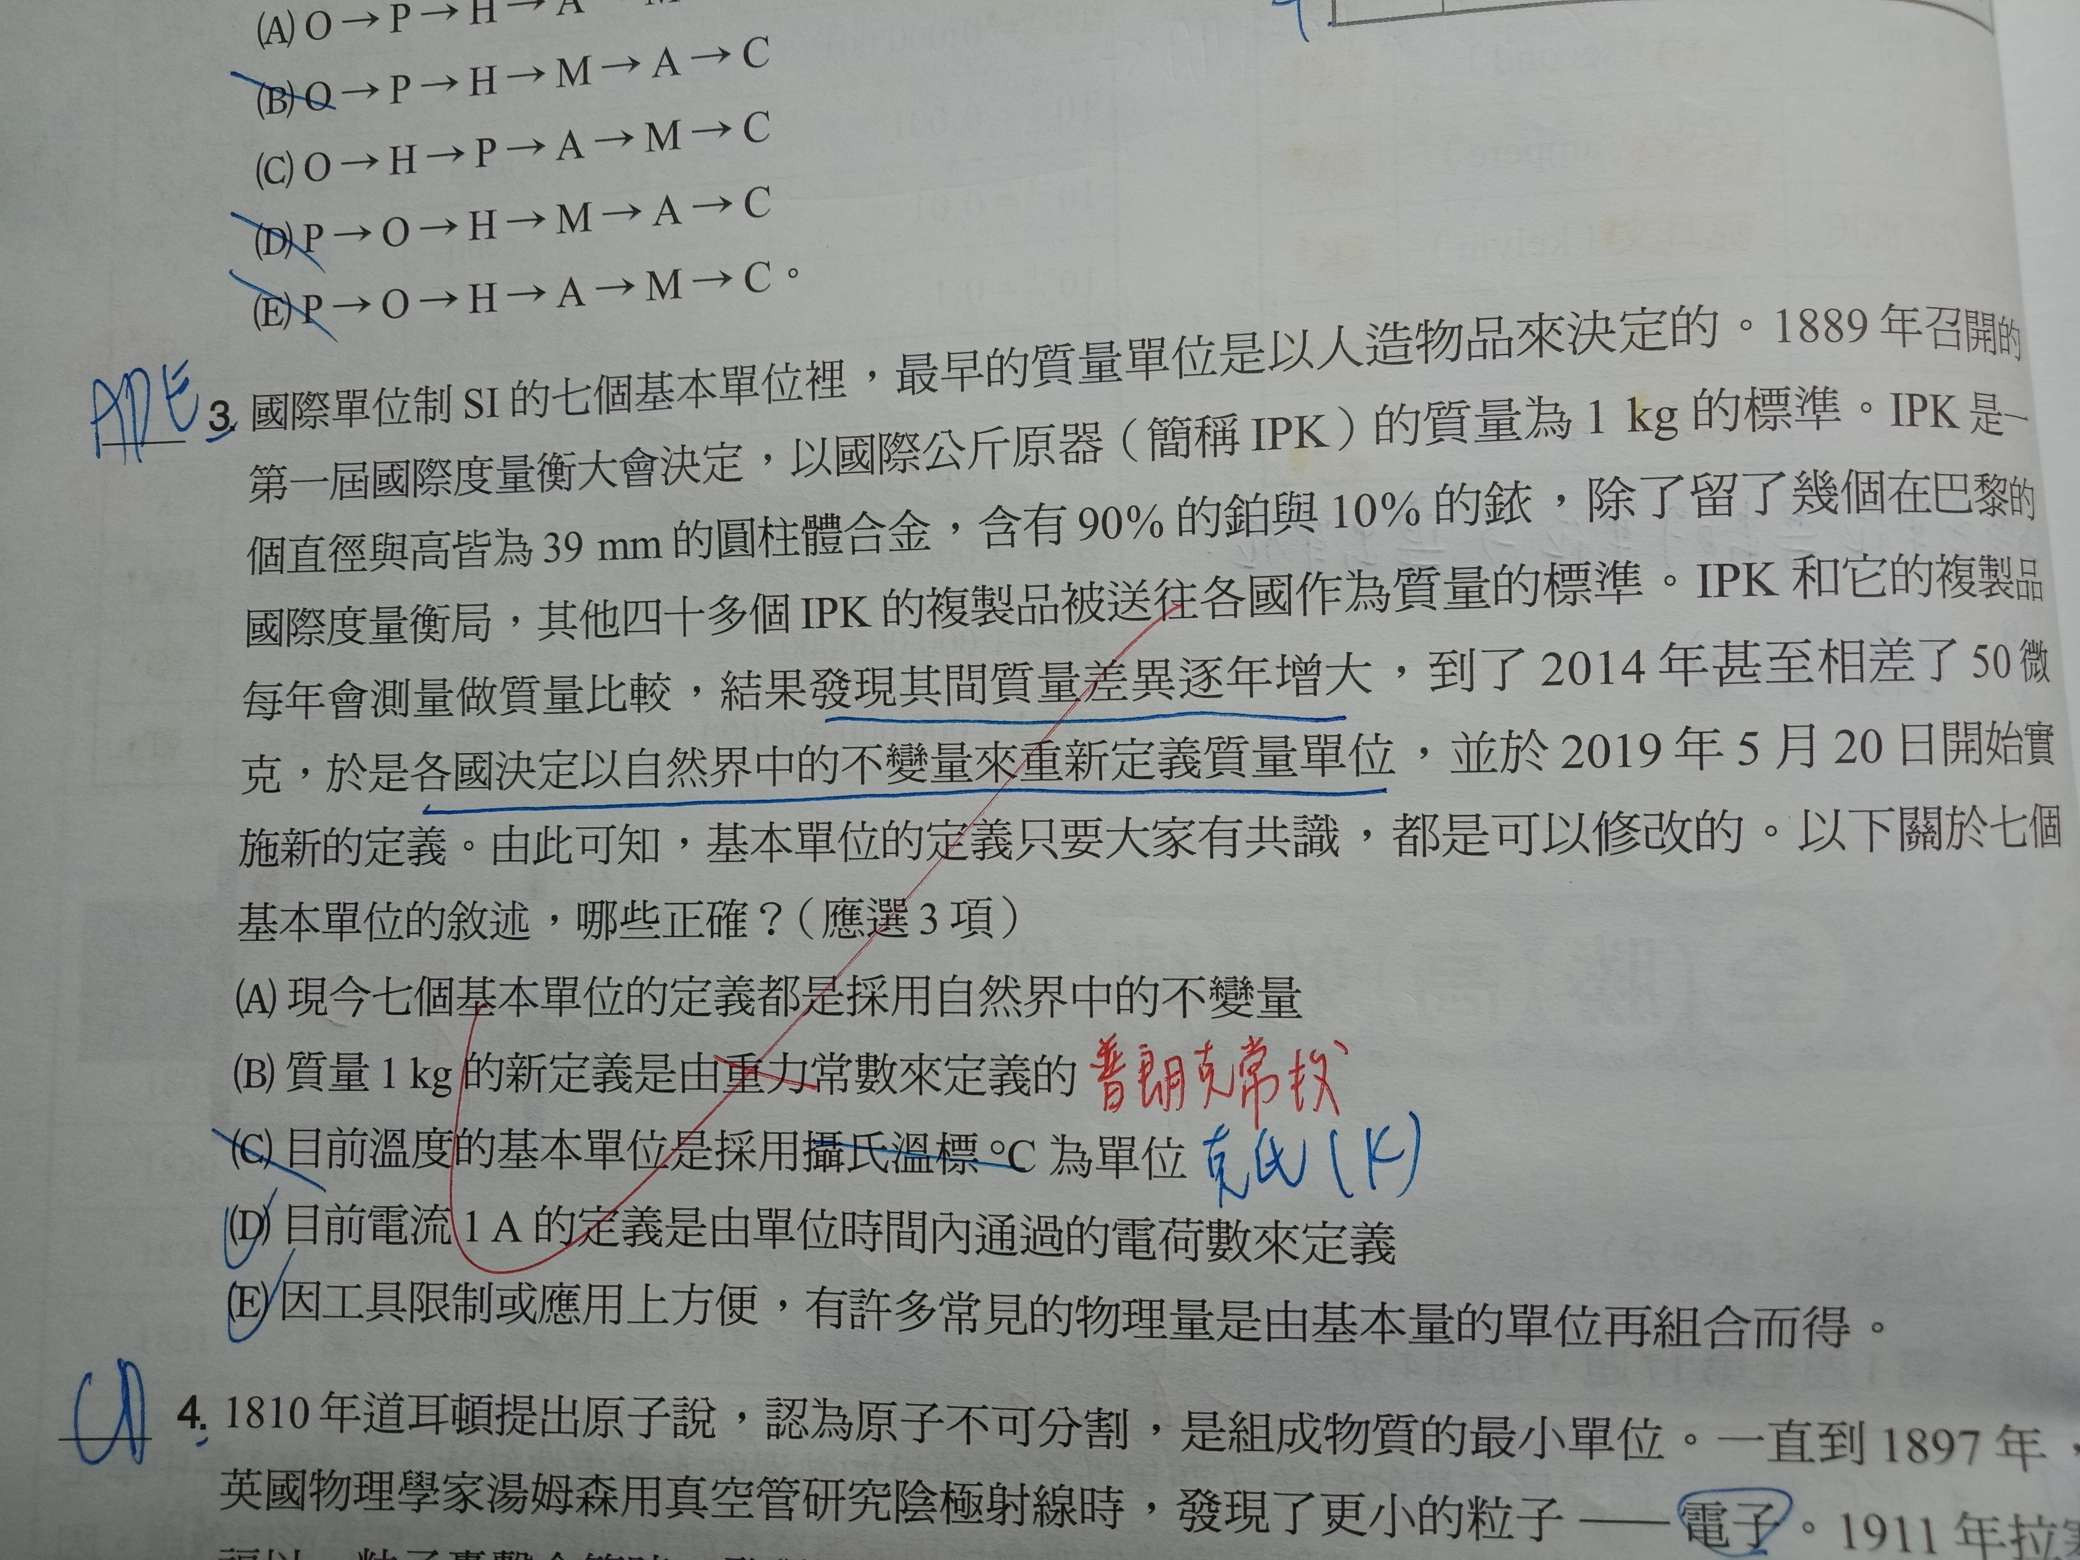 (A) O→P→H→A
(B) O→P→H→M→A→C
(C) O→H→P→A→M→C
(D) P→O→H→M→A→C
(E) P→O→H→A→M→C。
ADE 3. 國際單位制 SI 的七個基本單位裡，最早的質量單位是以人造物品來決定的。1889 年召開的
第一屆國際度量衡大會決定，以國際公斤原器（簡稱 IPK）的質量為 1 kg 的標準。IPK 是一
個直徑與高皆為 39 mm 的圓柱體合金，含有 90% 的鉑與 10% 的銥，除了留了幾個在巴黎的
國際度量衡局，其他四十多個 IPK 的複製品被送往各國作為質量的標準。IPK 和它的複製品
每年會測量做質量比較，結果發現其間質量差異逐年增大，到了 2014 年甚至相差了 50 微
克，於是各國決定以自然界中的不變量來重新定義質量單位，並於 2019 年 5 月 20 日開始實
施新的定義。由此可知，基本單位的定義只要大家有共識，都是可以修改的。以下關於七個
基本單位的敘述，哪些正確？（應選 3 項）
(A) 現今七個基本單位的定義都是採用自然界中的不變量
(B) 質量 1 kg 的新定義是由重力常數來定義的 普朗克常数
(C) 目前溫度的基本單位是採用攝氏溫標 °C 為單位 克氏（K）
(D) 目前電流 1 A 的定義是由單位時間內通過的電荷數來定義
(E) 因工具限制或應用上方便，有許多常見的物理量是由基本量的單位再組合而得。
CD 4. 1810 年道耳頓提出原子說，認為原子不可分割，是組成物質的最小單位。一直到 1897 年，
英國物理學家湯姆森用真空管研究陰極射線時，發現了更小的粒子——電子。1911 年拉